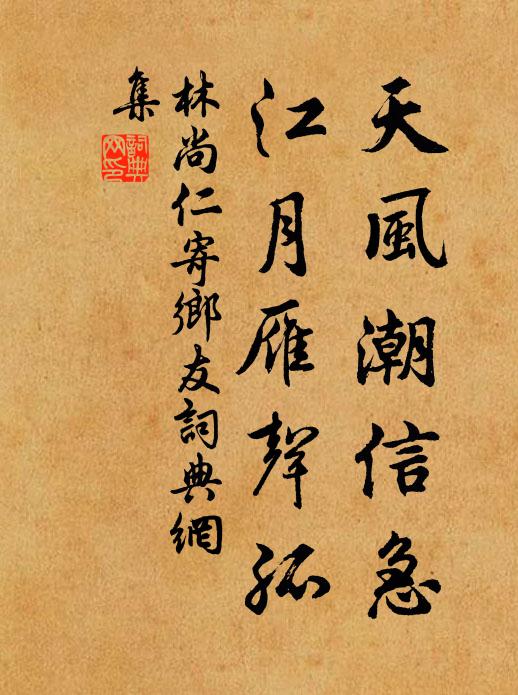 天風潮信急
江月雁聲孤
林尚仁寄鄉友詞典網
集
詞典
网印